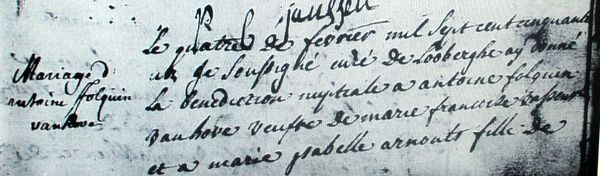 janssen
Le quatre de fevrier mil sept cent cinquante
un je soussigné curé de Looberghe ay donné
la benediction nuptiale a antoine folquin
vanhove veufve de marie francoise vasseur
et a marie ysabelle arnouts fille de
Mariage d'
antoine folquin
vanhove